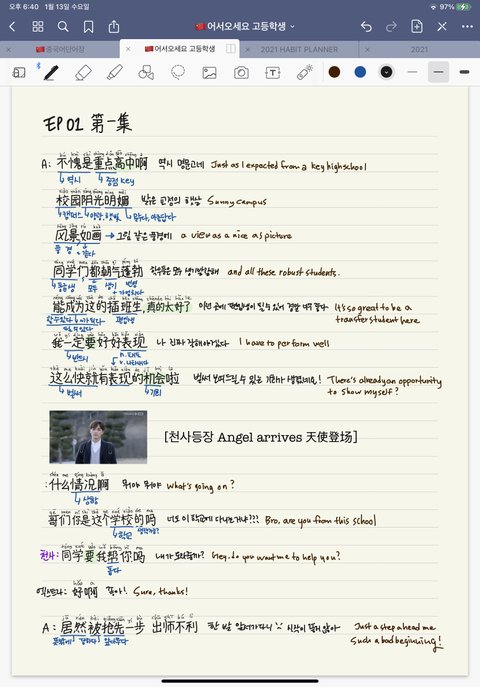 오후 6:40 1월 13일 수요일
97%
어서오세요 고등학생
중국어단어장
어서오세요 고등학생
2021 HABIT PLANNER
2021
EP 01 第一集
A: 不愧是重点高中啊 역시 명문고네 Just as I expected from a key highschool
역시 중점 key
校园阳光明媚 밝은 교정의 햇살 Sunny campus
캠퍼스
风景如画 → 그림 같은 풍경에 a view as a nice as picture
풍경 같다
同学们都朝气蓬勃 and all these robust students.
동급생 모두 생기
能成为这的插班生,真的太好了 이런 곳에 편입생이 될 수 있어 정말 너무 좋다 It's so great to be a
편입생 transfer student here
我一定要好好表现 나 진짜 잘해야겠다 I have to perform well
반드시
这么快就有表现的机会啦 벌써 보여드릴 수 있는 기회가 생겼네요! There's already an opportunity
벌써 기회 to show myself?
[천사등장 Angel arrives 天使登场]
: 什么情况啊 뭐야 뭐야 What's going on?
상황
哥们你是这个学校的吗 너도 이 학교에 다니는거냐??? Bro, are you from this school
학교
천사: 同学要我帮你吗 내가 도와줄까? Hey, do you want me to help you?
돕다
엑스트라: 好啊 좋아! Sure, thanks!
A: 居然被抢先一步 出师不利 한 발 앞서가다니 시작이 좋지 않아 Just a step ahead me
뜻밖에 앞서다 Such a bad beginning!